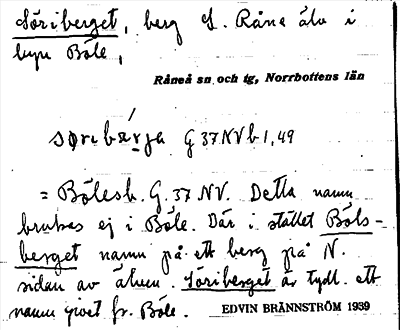 Söriberget, berg S. Råne älv i
byn Böle,
Råneå sn och tg, Norrbottens län
søribærja G 37 NV b 1, 49
= Bölesb. G. 37 NV. Detta namn
brukas ej i Böle. Där i stället Böls-
berget namn på ett berg på N.
sidan av älven. Söriberget är tydl. ett
namn givet fr. Böle.
EDVIN BRÄNNSTRÖM 1939